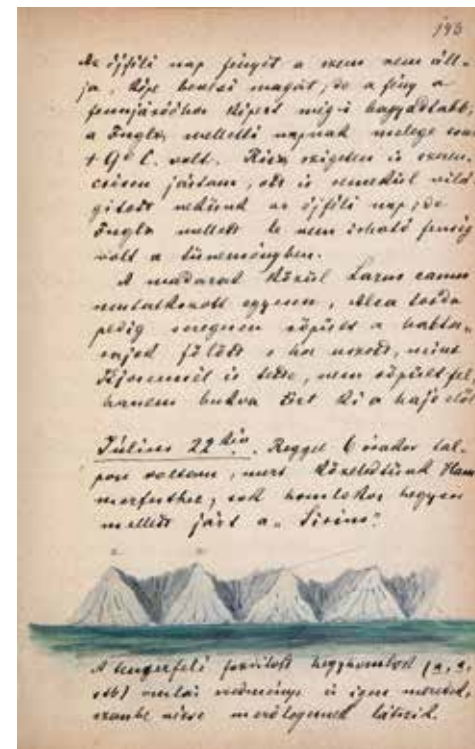 195
Az éjféli nap fényét a szem nem áll-
ja, képe benső magát, de a fény a
fennjáróéhoz képest mégis bágyadtabb,
a Fuglö melletti napnak melege
+ 9° C. volt. Rico szigeten is szeren-
csésen jártam, ott is remekül vilá
gított nekünk az éjféli nap, de
Fuglö mellett le nem írható fenség
volt a tüneményben.
A madarak közül Larus canus
mutatkozott egyesen, Alca torda
pedig seregesen röpült a habta-
rajok fölött s ha uszott, mint
is tette, nem röpült fel,
hanem bukva tért ki a hajó elől
Július 22 kén. Reggel 6 órakor tal-
pon voltam, mert közeledtünk Ham
merfesthez, sok homlokos hegyen
mellett járt a „Sirius".
A tengerfelé fordított hegyhomlok (a, a,
stb) omlás eredménye is igen meredek,
szembe nézve merőlegesnek látszik.